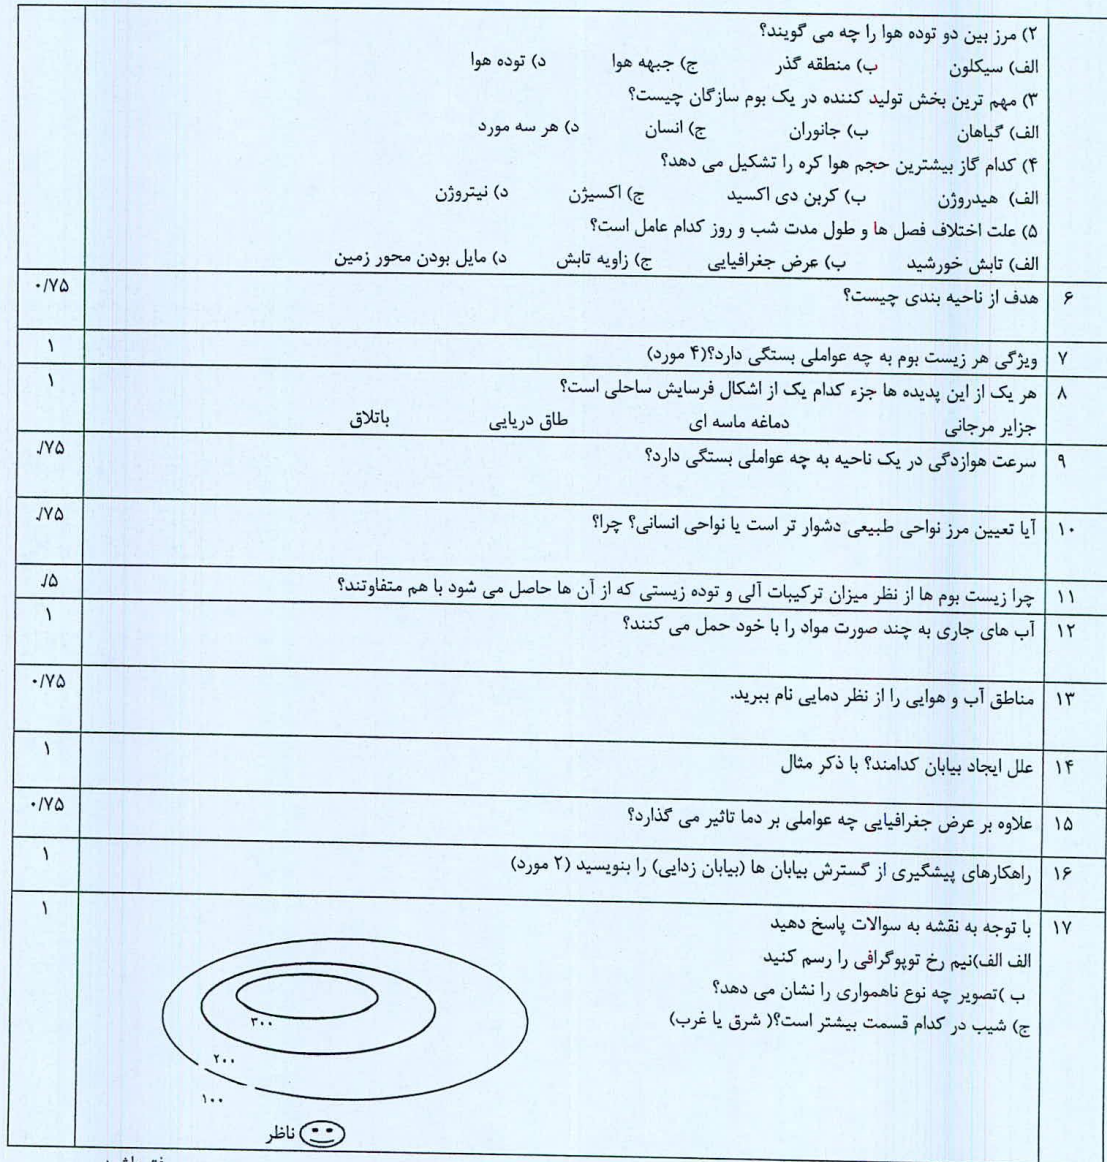 ۲) مرز بین دو توده هوا را چه می گویند؟
الف) سیکلون ب) منطقه گذر ج) جبهه هوا د) توده هوا
۳) مهم ترین بخش تولید کننده در یک بوم سازگان چیست؟
الف) گیاهان ب) جانوران ج) انسان د) هر سه مورد
۴) کدام گاز بیشترین حجم هوا کره را تشکیل می دهد؟
الف) هیدروژن ب) کربن دی اکسید ج) اکسیژن د) نیتروژن
۵) علت اختلاف فصل ها و طول مدت شب و روز کدام عامل است؟
الف) تابش خورشید ب) عرض جغرافیایی ج) زاویه تابش د) مایل بودن محور زمین
۶ هدف از ناحیه بندی چیست؟ ۰/۷۵
۷ ویژگی هر زیست بوم به چه عواملی بستگی دارد؟(۴ مورد) ۱
۸ هر یک از این پدیده ها جزء کدام یک از اشکال فرسایش ساحلی است؟ ۱
جزایر مرجانی دماغه ماسه ای طاق دریایی باتلاق
۹ سرعت هوازدگی در یک ناحیه به چه عواملی بستگی دارد؟ ./۷۵
۱۰ آیا تعیین مرز نواحی طبیعی دشوار تر است یا نواحی انسانی؟ چرا؟ ./۷۵
۱۱ چرا زیست بوم ها از نظر میزان ترکیبات آلی و توده زیستی که از آن ها حاصل می شود با هم متفاوتند؟ ./۵
۱۲ آب های جاری به چند صورت مواد را با خود حمل می کنند؟ ۱
۱۳ مناطق آب و هوایی را از نظر دمایی نام ببرید. ۰/۷۵
۱۴ علل ایجاد بیابان کدامند؟ با ذکر مثال ۱
۱۵ علاوه بر عرض جغرافیایی چه عواملی بر دما تاثیر می گذارد؟ ۰/۷۵
۱۶ راهکارهای پیشگیری از گسترش بیابان ها (بیابان زدایی) را بنویسید (۲ مورد) ۱
۱۷ با توجه به نقشه به سوالات پاسخ دهید ۱
الف الف)نیم رخ توپوگرافی را رسم کنید
ب )تصویر چه نوع ناهمواری را نشان می دهد؟
ج) شیب در کدام قسمت بیشتر است؟( شرق یا غرب)
۳۰۰
۲۰۰
۱۰۰
ناظر